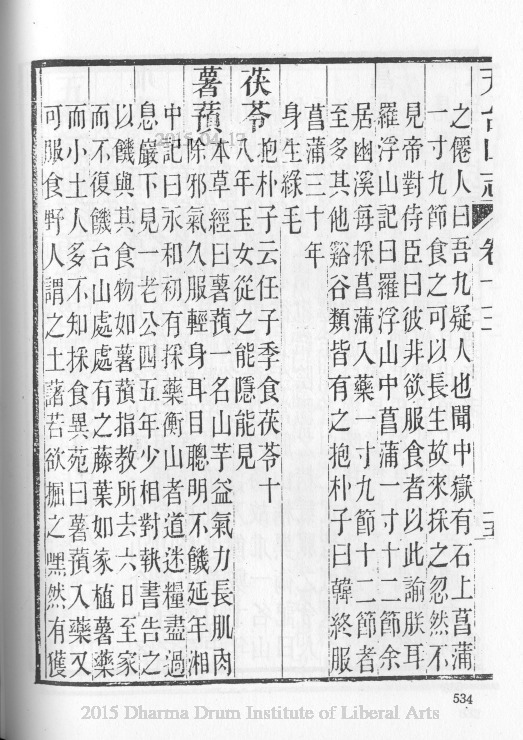 天台山志 卷十二 十五
之僊人曰吾九疑人也聞中嶽有石上菖蒲
一寸九節食之可以長生故來採之忽然不
見帝對侍臣曰彼非欲服食者以此諭朕耳
羅浮山記曰羅浮山中菖蒲一寸十二節余
居幽溪每採菖蒲入藥一寸九節十二節者
至多其他谿谷類皆有之抱朴子曰韓終服
菖蒲三十年
身生綠毛
茯苓抱朴子云任子季食茯苓十
八年玉女從之能隱能見
薯蕷本草經曰薯蕷一名山芋益氣力長肌肉
除邪氣久服輕身耳目聰明不饑延年湘
中記曰永和初有採藥衡山者道迷糧盡過
息巖下見一老公四五年少相對執書告之
以饑與其食物如薯蕷指教所去六日至家
而不復饑台山處處有之藤葉如家植薯藥
而小土人多不知採食異苑曰薯蕷入藥又
可服食野人謂之土藷若欲掘之嘿然有獲
534
2015.04.17
2015 Dharma Drum Institute of Liberal Arts